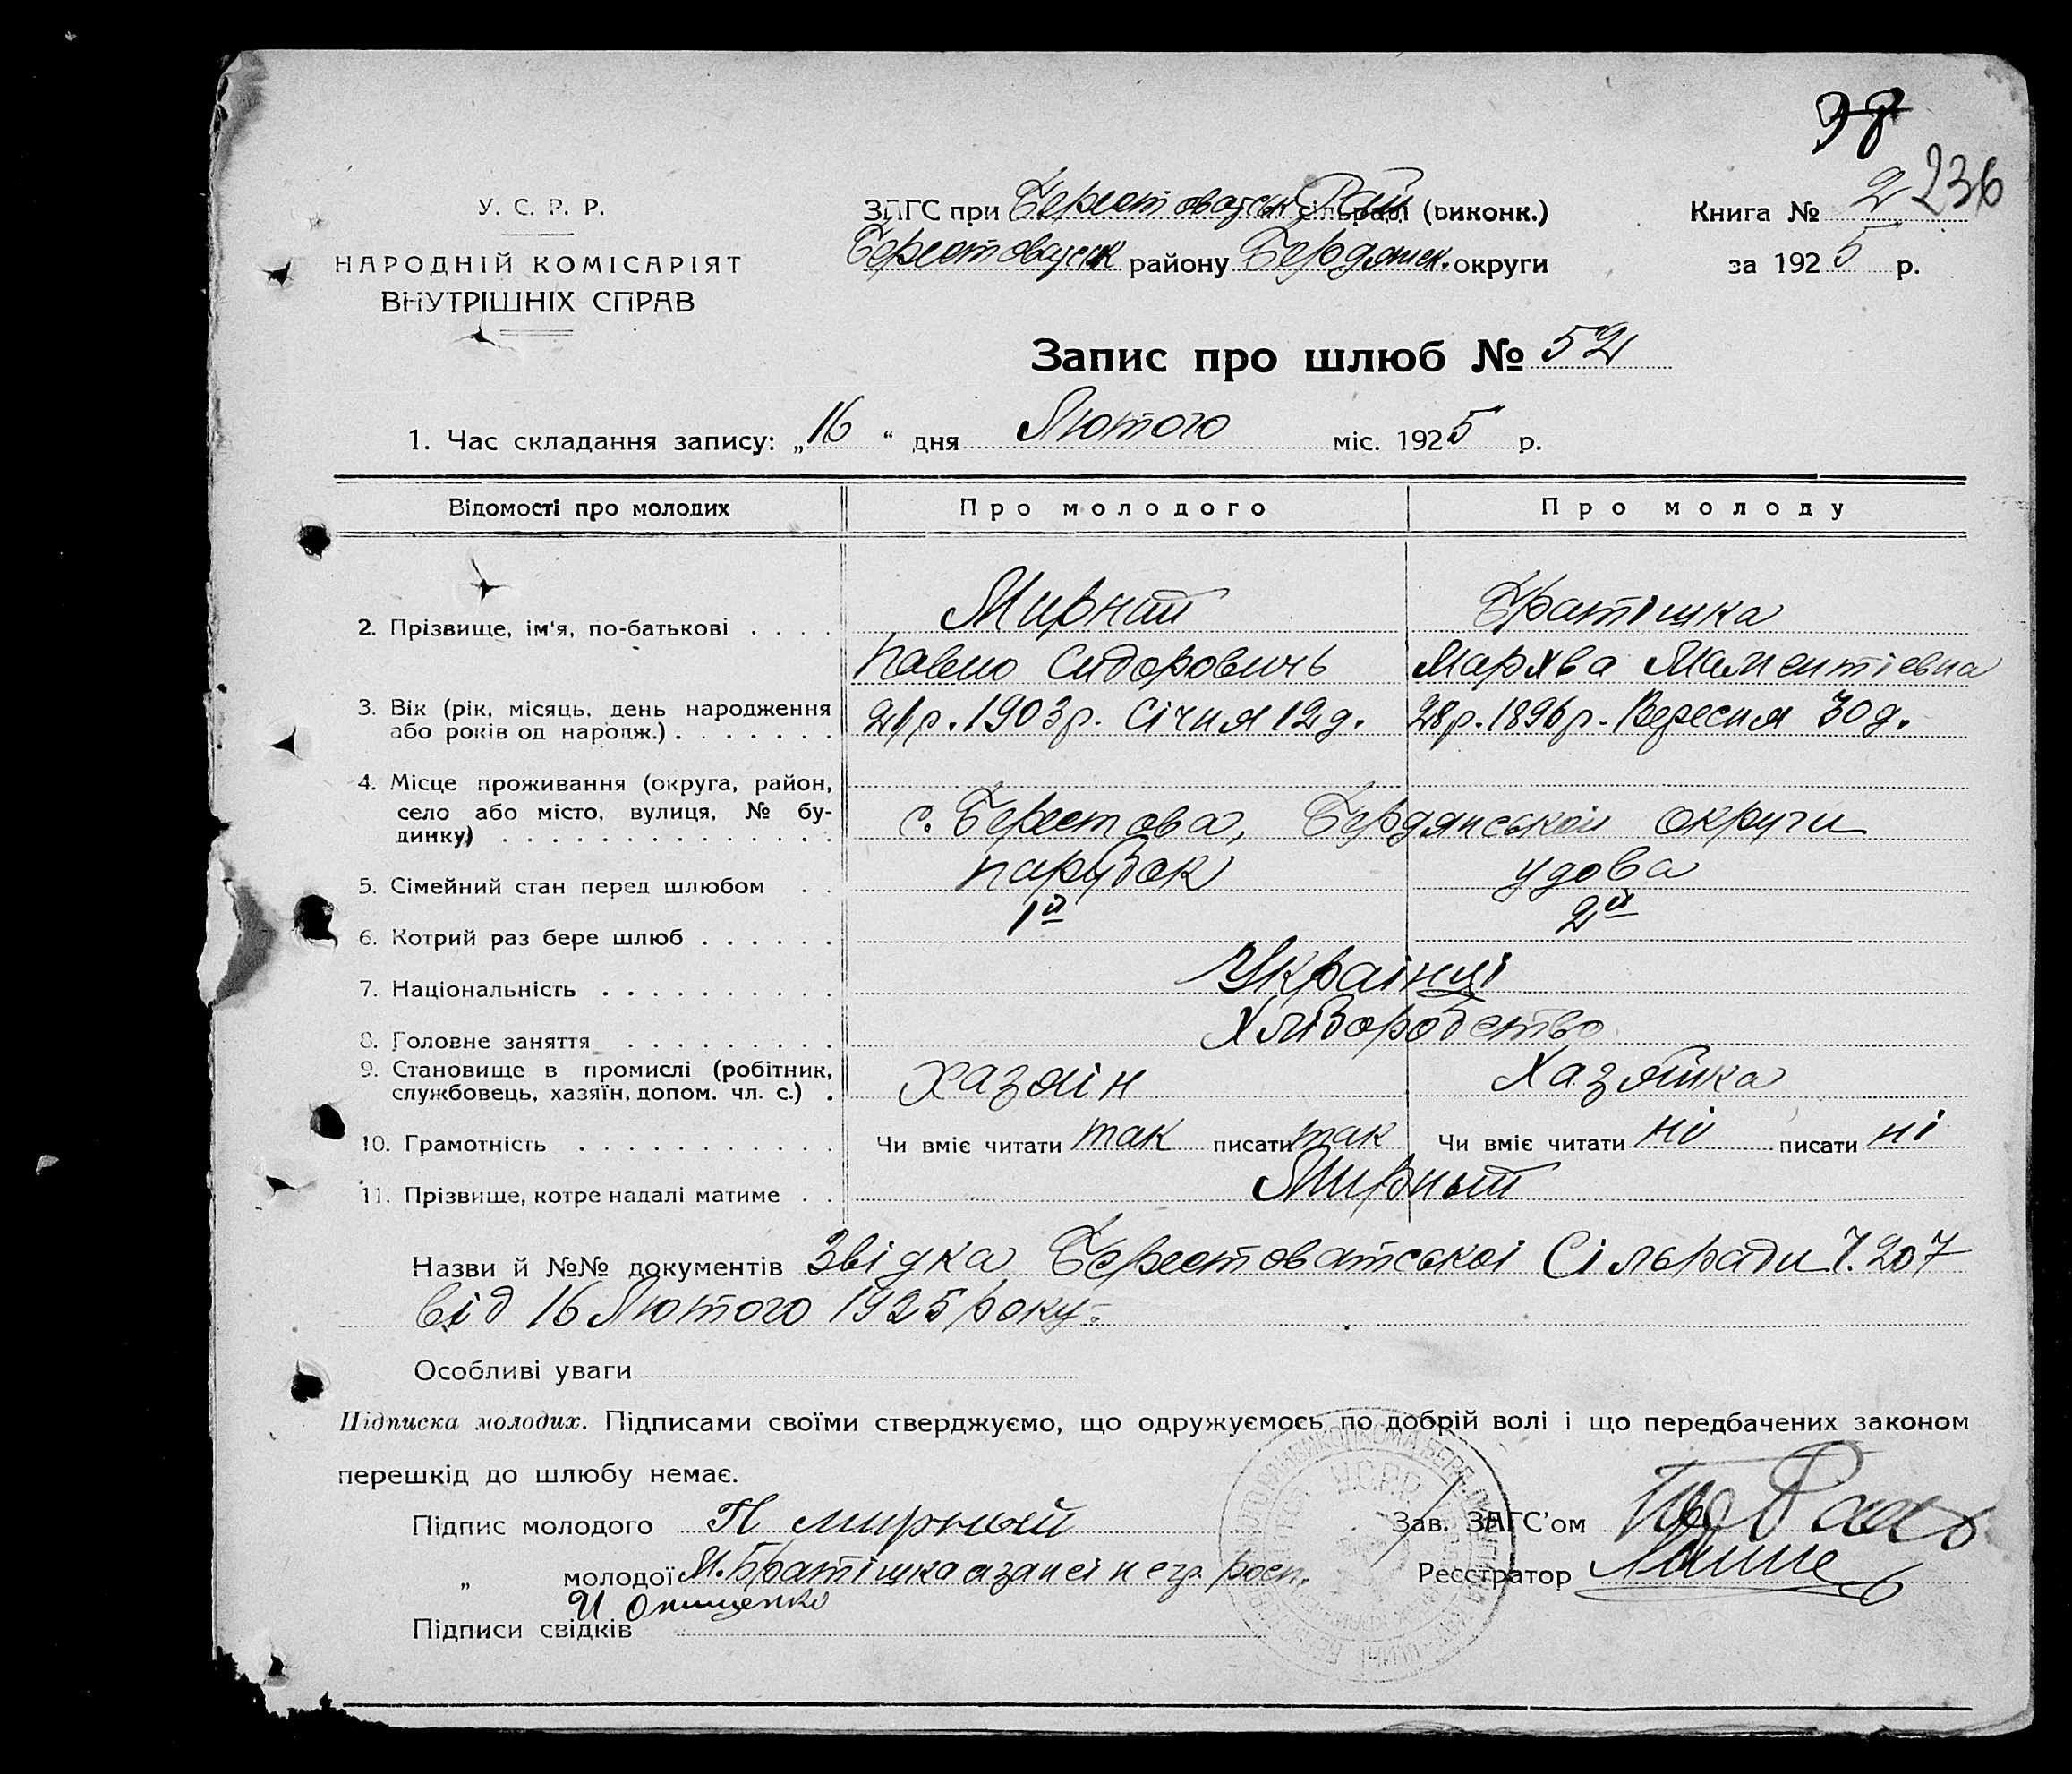 38
2 236
У. С. Р. Р.
НАРОДНІЙ КОМІСАРІЯТ
ВНУТРІШНІХ СПРАВ
ЗАГС при Берестоватськ Рай сільраді (виконк.)
Берестовацьк району Бердянськ. округи
Книга № 
за 1925 р.
Запис про шлюб № 52
1. Час складання запису: „16“ дня Лютого міс. 1925 р.
Відомості про молодих
Про молодого
Про молоду
2. Прізвище, ім'я, по-батькові . . . .
Мирний
Братішка
Павло Сидоровичь
Маментіевна
3. Вік (рік, місяць, день народження
або років од народж.) . . . . . . .
21р. 1903р. Січня 12д.
28р. 1896р. Вересня 30д.
4. Місце проживання (округа, район,
село або місто, вулиця, № бу-
динку) . . . . . . . . . . . . . .
с. Берестова, Бердянськой округи
5. Сімейний стан перед шлюбом . .
парубок
удова
6. Котрий раз бере шлюб . . . . . .
1й
2й
7. Національність . . . . . . . . . .
Українці
8. Головне заняття . . . . . . . . .
Хліборобство
9. Становище в промислі (робітник,
службовець, хазяїн, допом. чл. с.) .
хазяін
Хазяйка
10. Грамотність . . . . . . . . . . .
Чи вміє читати так писати так
Чи вміє читати ні писати ні
11. Прізвище, котре надалі матиме . .
Мирный
Назви й №№ документів Звідка Берестоватськоі Сільради Ч. 207
від 16 Лютого 1925 року.
Особливі уваги
Підписка молодих. Підписами своїми стверджуємо, що одружуємось по добрій волі і що передбачених законом
перешкід до шлюбу немає.
Підпис молодого П мирный
Зав. ЗАГС'ом
„ молодої М. Братішка а за неі негр. росп.
Реєстратор
И Онищенко
Підписи свідків
У.С.Р.Р.